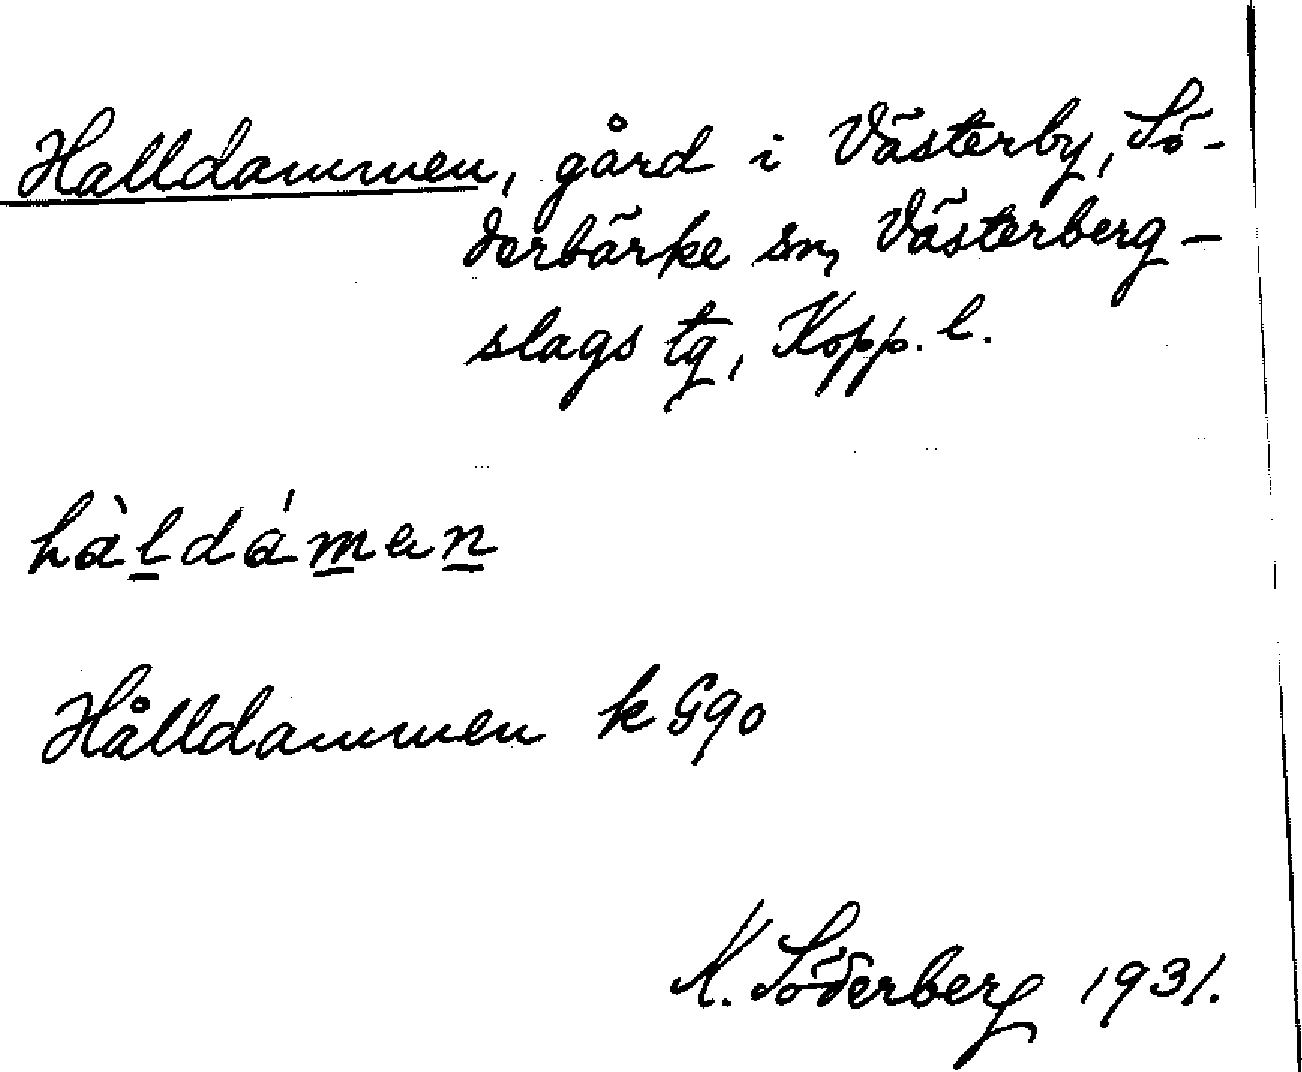 Halldammen, gård i Västerby, Sö-
derbärke sn, Västerberg-
slags tg, Kopp. l.
hàldáman
Hålldammen k G90
K. Söderberg 1931.